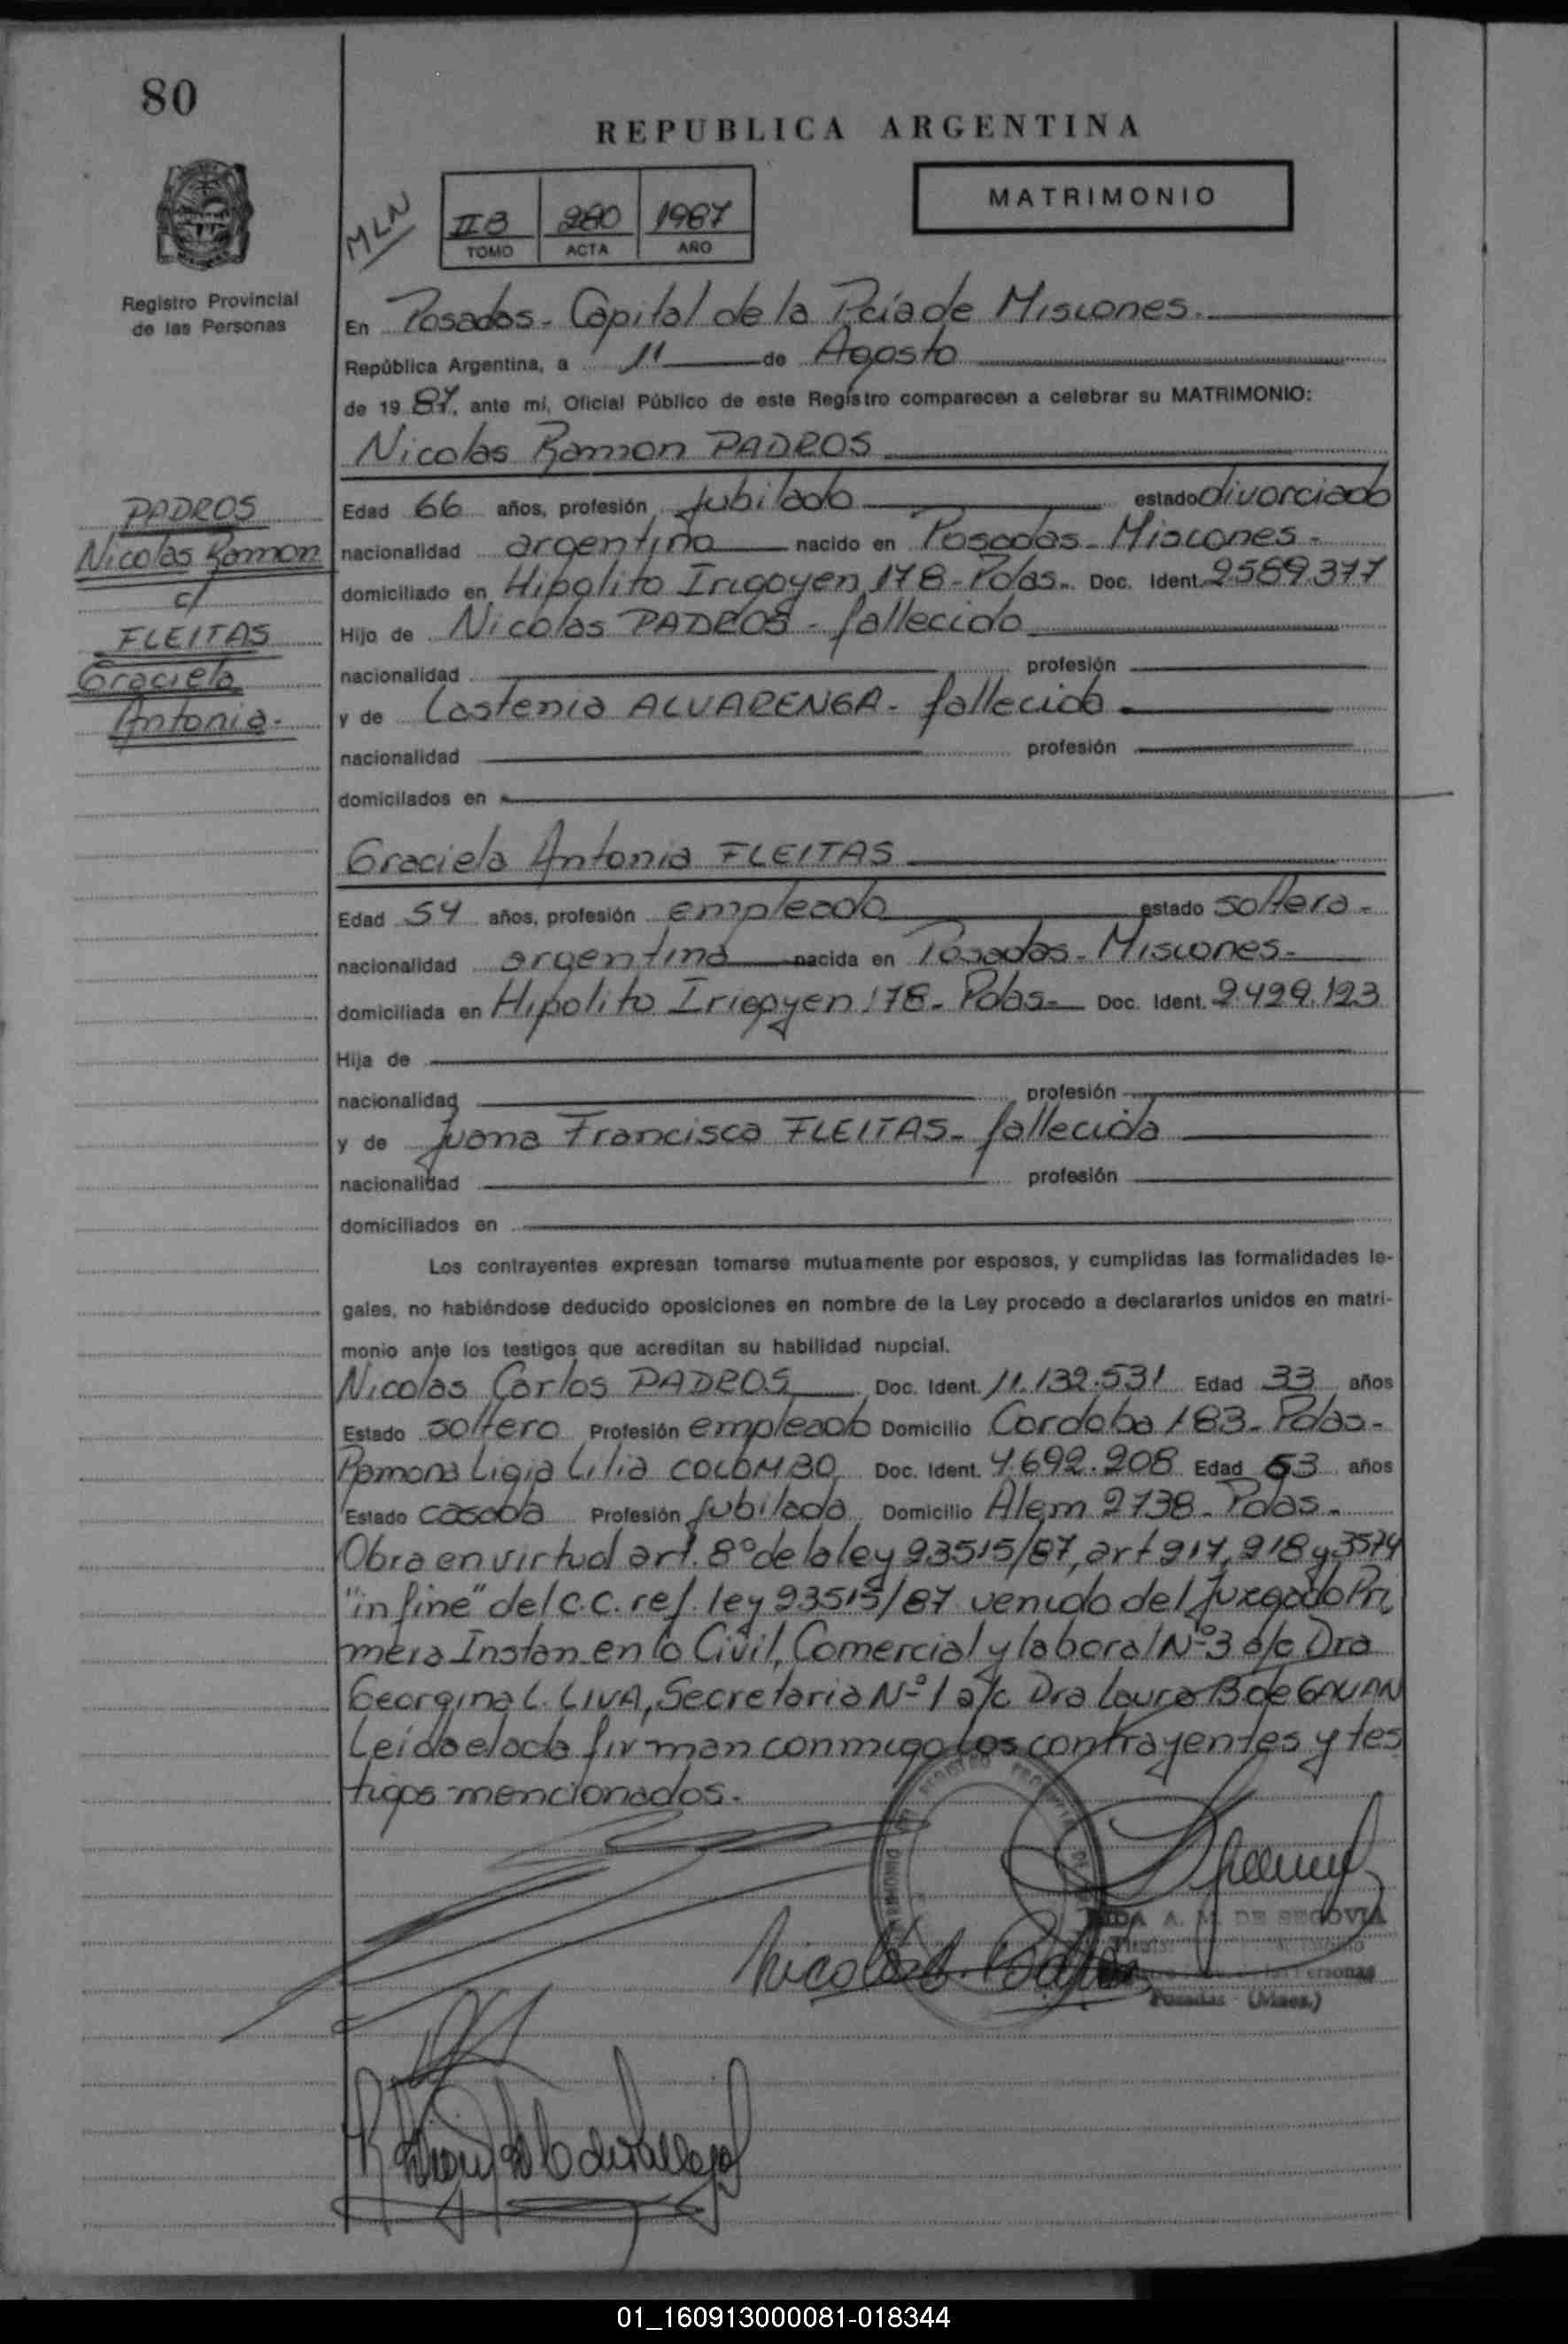 80
REPUBLICA ARGENTINA
MATRIMONIO
MLN
II B 280 1987
TOMO ACTA AÑO
Registro Provincial
de las Personas
En Posadas - Capital de la Pcia de Misiones.
República Argentina, a 11 de Agosto
de 19 87, ante mí, Oficial Público de este Registro comparecen a celebrar su MATRIMONIO:
Nicolas Ramon PADROS
PADROS
Nicolas Ramon
c/
FLEITAS
Graciela
Antonia.-
Edad 66 años, profesión Jubilado estado divorciado
nacionalidad argentina nacido en Posadas - Misiones -
domiciliado en Hipolito Irigoyen 178 - Pdas.. Doc. Ident. 2.589.377
Hijo de Nicolas PADROS - fallecido
nacionalidad profesión
y de Lastenia ALVARENGA - fallecida
nacionalidad profesión
domiciliados en
Graciela Antonia FLEITAS
Edad 54 años, profesión empleada estado soltera -
nacionalidad argentina nacida en Posadas - Misiones -
domiciliada en Hipolito Iriegoyen 178 - Pdas - Doc. Ident. 2.429.123
Hija de
nacionalidad profesión
y de Juana Francisca FLEITAS - fallecida
nacionalidad profesión
domiciliados en
Los contrayentes expresan tomarse mutuamente por esposos, y cumplidas las formalidades le-
gales, no habiéndose deducido oposiciones en nombre de la Ley procedo a declararlos unidos en matri-
monio ante los testigos que acreditan su habilidad nupcial.
Nicolas Carlos PADROS Doc. Ident. 11.132.531 Edad 33 años
Estado soltero Profesión empleado Domicilio Cordoba 183 - Pdas -
Ramona Ligia Lilia COLOMBO Doc. Ident. 4.692.208 Edad 53 años
Estado casada Profesión Jubilada Domicilio Alem 2738 - Pdas -
Obra en virtud art. 8º de la ley 23515/87, art 217, 218 y 3574
"in fine" del C.C. ref. ley 23515/87 venido del Juzgado Pri
mera Instan en lo Civil, Comercial y laboral Nº 3 a/c Dra
Georgina L. LIVA, Secretaria Nº 1 a/c Dra Laura B de
Leída el acta firman conmigo los contrayentes y tes
tigos mencionados.-
A. M. DE SEGOVIA
Personas
Posadas (Mnes.)
01_160913000081-018344